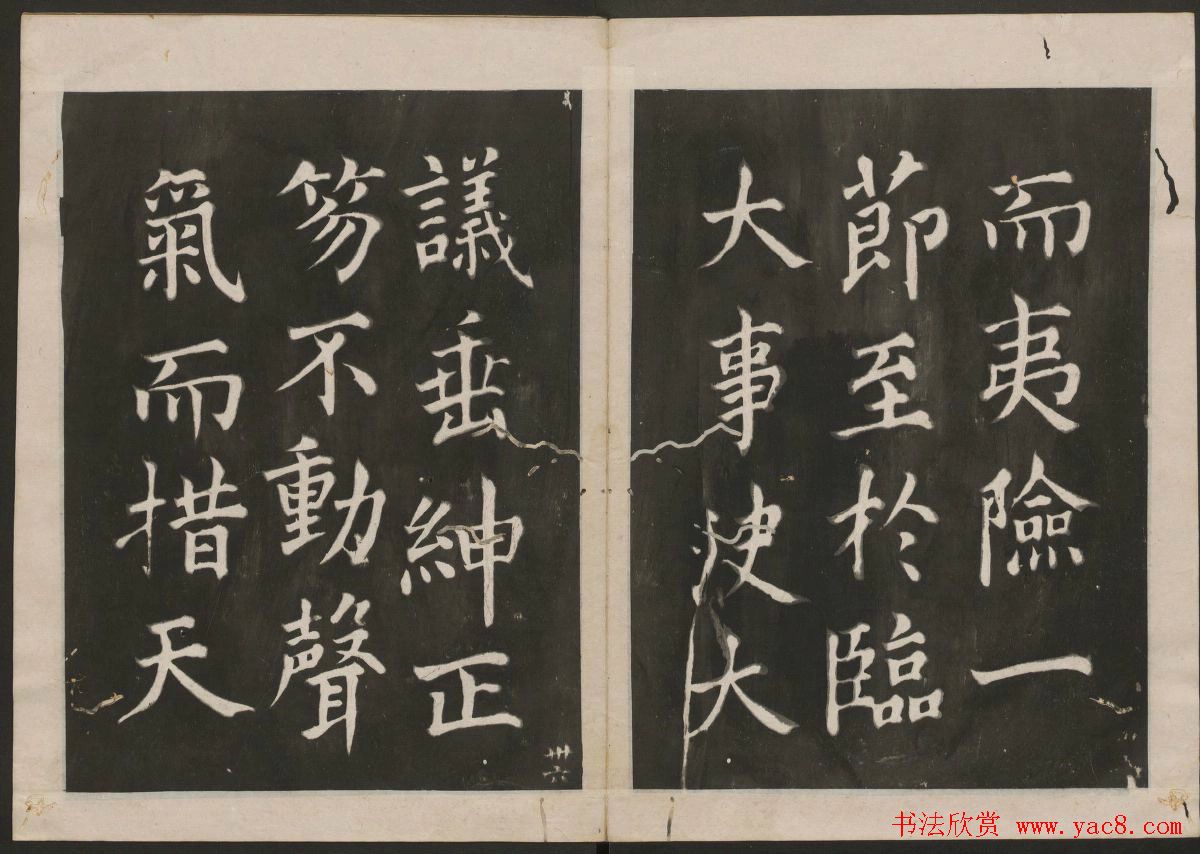 而夷險一
節至於臨
大事决大
議垂紳正
笏不動聲
氣而措天
卅六
书法欣赏 www.yac8.com